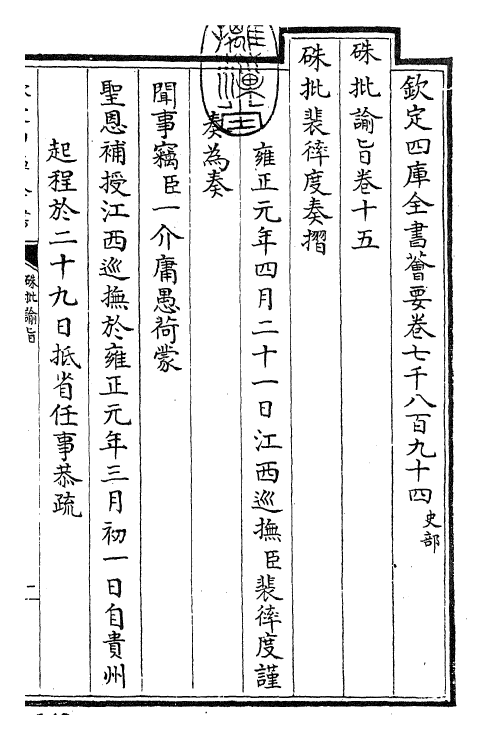 欽定四庫全書薈要卷七千八百九十四 史部
硃批諭旨卷十五
硃批裴𢕑度奏摺
雍正元年四月二十一日江西巡撫臣裴𢕑度謹
奏為奏
聞事竊臣一介庸愚荷蒙
聖恩補授江西巡撫於雍正元年三月初一日自貴州
起程於二十九日抵省任事恭疏
硃批諭旨
一